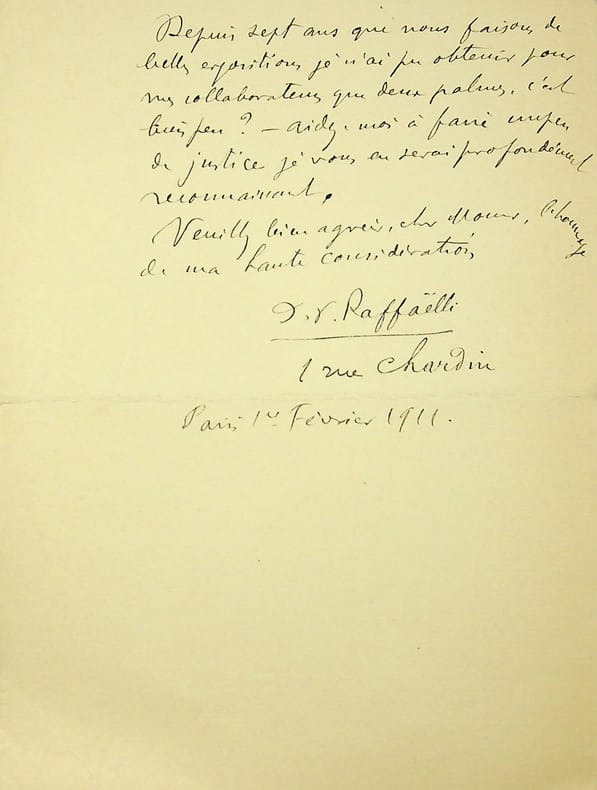 Depuis sept ans que nous faisons de
belles expositions je n'ai pu obtenir pour
mes collaborateurs que deux palmes. c'est
bien peu ? — aidez-moi à faire un peu
de justice je vous en serai profondément
reconnaissant.
Veuillez bien agréer, cher Monsieur, l'hommage
de ma haute considération
J. F. Raffaëlli
1 rue Chardin
Paris 1er Février 1911.